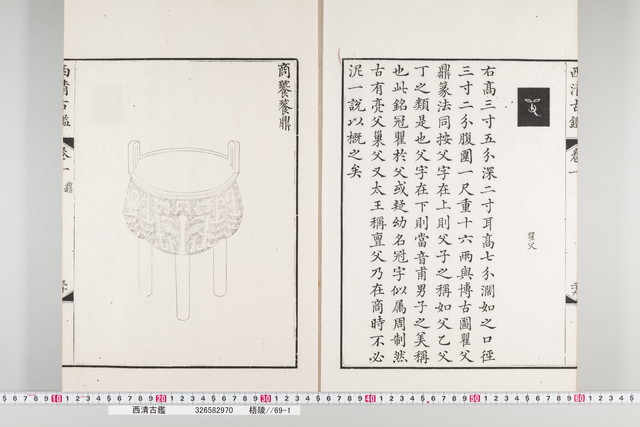 西清古鑑 卷一
瞿父
右高三寸五分深二寸耳高七分濶如之口徑
三寸二分腹圍一尺重十六兩與博古圖瞿父
鼎篆法同按父字在上則父子之稱如父乙父
丁之類是也父字在下則當音甫男子之美稱
也此銘冠瞿於父或疑幼名冠字似属周制然
古有亮父巢父又太王稱亶父乃在商時不必
泥一說以概之矣
商饕餮鼎
西清古鑑 卷一 鼎
西清古鑑 326582970 梧陵//69-1
10 20 30 40 50 60